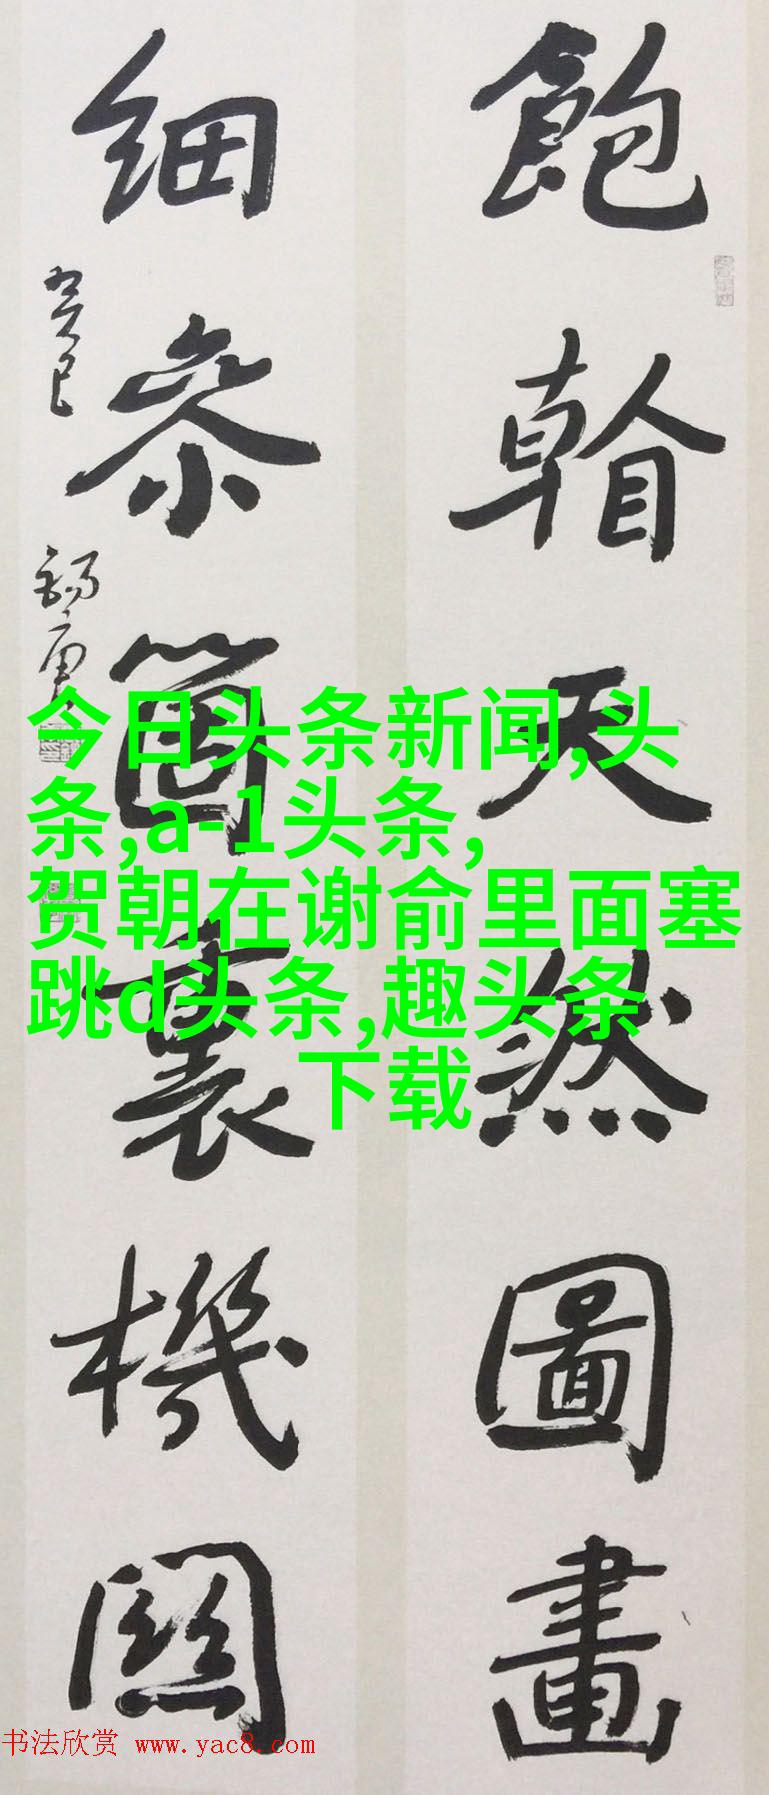 飽𩜙天然圖畫
細参箇裏機關
癸巳
今日头条新闻,头
条,a-1头条,
贺朝在谢俞里面塞
跳d头条,趣头条
下载
书法欣赏 www.yac8.com